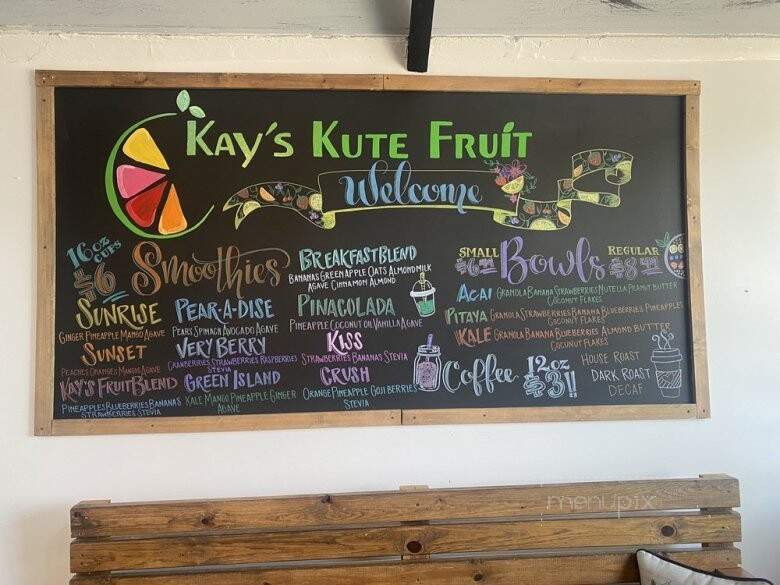 KAY'S KUTE FRUIT
Welcome
16oz
CUPS
$6
Smoothies
SUNRISE
GINGER PINEAPPLE MANGO AGAVE
SUNSET
PEACHES ORANGES MANGOS AGAVE
KAY'S FRUIT BLEND
PINEAPPLES BLUEBERRIES BANANAS
STRAWBERRIES STEVIA
PEAR-A-DISE
PEARS SPINACH AVOCADO AGAVE
VERY BERRY
CRANBERRIES STRAWBERRIES RASPBERRIES
STEVIA
GREEN ISLAND
KALE MANGO PINEAPPLE GINGER
AGAVE
BREAKFAST BLEND
BANANAS GREEN APPLE OATS ALMOND MILK
AGAVE CINNAMON ALMOND
PINACOLADA
PINEAPPLE COCONUT OIL VANILLA AGAVE
KISS
STRAWBERRIES BANANAS STEVIA
CRUSH
ORANGE PINEAPPLE GOJI BERRIES
STEVIA
SMALL
Bowls
REGULAR
ACAI GRANOLA BANANA STRAWBERRIES NUTELLA PEANUT BUTTER
COCONUT FLAKES
PITAYA GRANOLA STRAWBERRIES BANANA BLUEBERRIES PINEAPPLES
COCONUT FLAKES
KALE GRANOLA BANANA BLUEBERRIES ALMOND BUTTER
COCONUT FLAKES
Coffee 12oz
$3!!
HOUSE ROAST
DARK ROAST
DECAF
menupix